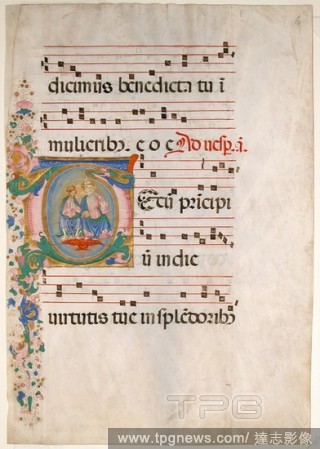 dicimus benedicta tu ī
mulieribꝫ. e o e Ad uesp. ā.
Tecū prīncipi
ū in die
uirtutis tue in splēdoribꝫ
TPG
www.tpgnews.com/ 達志影像